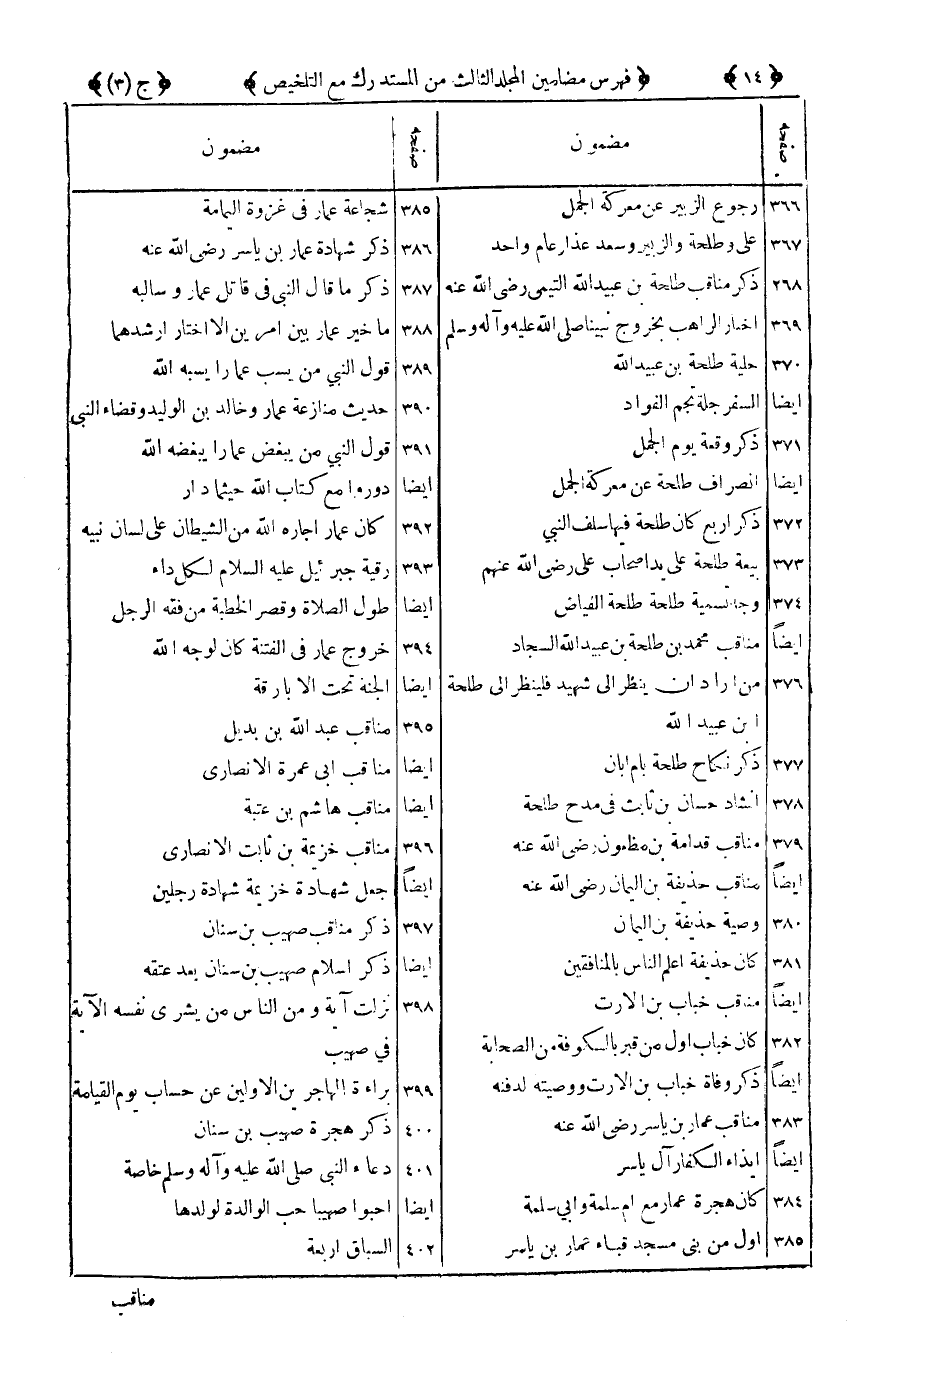 ﴿ ١٤ ﴾ ﴿ فهرس مضامين المجلد الثالث من المستدرك مع التلخيص ﴾ ﴿ ج (٣) ﴾
صفحة مضمون
٣٦٦ رجوع الزبير عن معركة الجمل
٣٦٧ على وطلحة والزبير وسعد عذار عام واحد
٢٦٨ ذكر مناقب طلحة بن عبيدالله التيمى رضى الله عنه
٣٦٩ اخبار الراهب بخروج نبينا صلى الله عليه وآله وسلم
٣٧٠ حلية طلحة بن عبيد الله
ايضا السفرجلة تجم الفواد
٣٧١ ذكر وقعة يوم الجمل
ايضا انصراف طلحة عن معركة الجمل
٣٧٢ ذكر اربع كان طلحة فيها سلف النبي
٣٧٣ بيعة طلحة على يد اصحاب على رضى الله عنهم
٣٧٤ وجه تسمية طلحة طلحة الفياض
ايضاً مناقب محمد بن طلحة بن عبيد الله السجاد
٣٧٦ من اراد ان ينظر الى شهيد فلينظر الى طلحة
ابن عبيد الله
٣٧٧ ذكر نكاح طلحة بام ابان
٣٧٨ انشاد حسان بن ثابت فى مدح طلحة
٣٧٩ مناقب قدامة بن مظعون رضى الله عنه
ايضاً مناقب حذيفة بن اليمان رضى الله عنه
٣٨٠ وصية حذيفة بن اليمان
٣٨١ كان حذيفة اعلم الناس بالمنافقين
ايضاً مناقب خباب بن الارت
٣٨٢ كان خباب اول من قبر بالكوفة من الصحابة
ايضاً ذكر وفاة خباب بن الارت ووصيته لدفنه
٣٨٣ مناقب عمار بن ياسر رضى الله عنه
ايضاً ايذاء الكفار آل ياسر
٣٨٤ كان هجرة عمار مع ام سلمة وابي سلمة
٣٨٥ اول من بنى مسجد قباء عمار بن ياسر
صفحة مضمون
٣٨٥ شجاعة عمار فى غزوة اليمامة
٣٨٦ ذكر شهادة عمار بن ياسر رضى الله عنه
٣٨٧ ذكر ما قال النبى فى قاتل عمار و سالبه
٣٨٨ ما خير عمار بين امرين الا اختار ارشدهما
٣٨٩ قول النبي من يسب عمارا يسبه الله
٣٩٠ حديث منازعة عمار وخالد بن الوليد وقضاء النبي
٣٩١ قول النبي من يبغض عمارا يبغضه الله
ايضا دوروا مع كتاب الله حيثما دار
٣٩٢ كان عمار اجاره الله من الشيطان على لسان نبيه
٣٩٣ رقية جبرئيل عليه السلام لكل داء
ايضا طول الصلاة وقصر الخطبة من فقه الرجل
٣٩٤ خروج عمار فى الفتنة كان لوجه الله
ايضا الجنة تحت الابارقة
٣٩٥ مناقب عبد الله بن بديل
ايضا مناقب ابى عمرة الانصارى
ايضا مناقب هاشم بن عتبة
٣٩٦ مناقب خزيمة بن ثابت الانصارى
ايضاً جعل شهادة خزيمة شهادة رجلين
٣٩٧ ذكر مناقب صهيب بن سنان
ايضا ذكر اسلام صهيب بن سنان بعد عتقه
٣٩٨ نزلت آية و من الناس من يشرى نفسه الآية
في صهيب
٣٩٩ براءة المهاجرين الاولين عن حساب يوم القيامة
٤٠٠ ذكر هجرة صهيب بن سنان
٤٠١ دعاء النبي صلى الله عليه وآله وسلم خاصة
ايضا احبوا صهيبا حب الوالدة لولدها
٤٠٢ السباق اربعة
مناقب